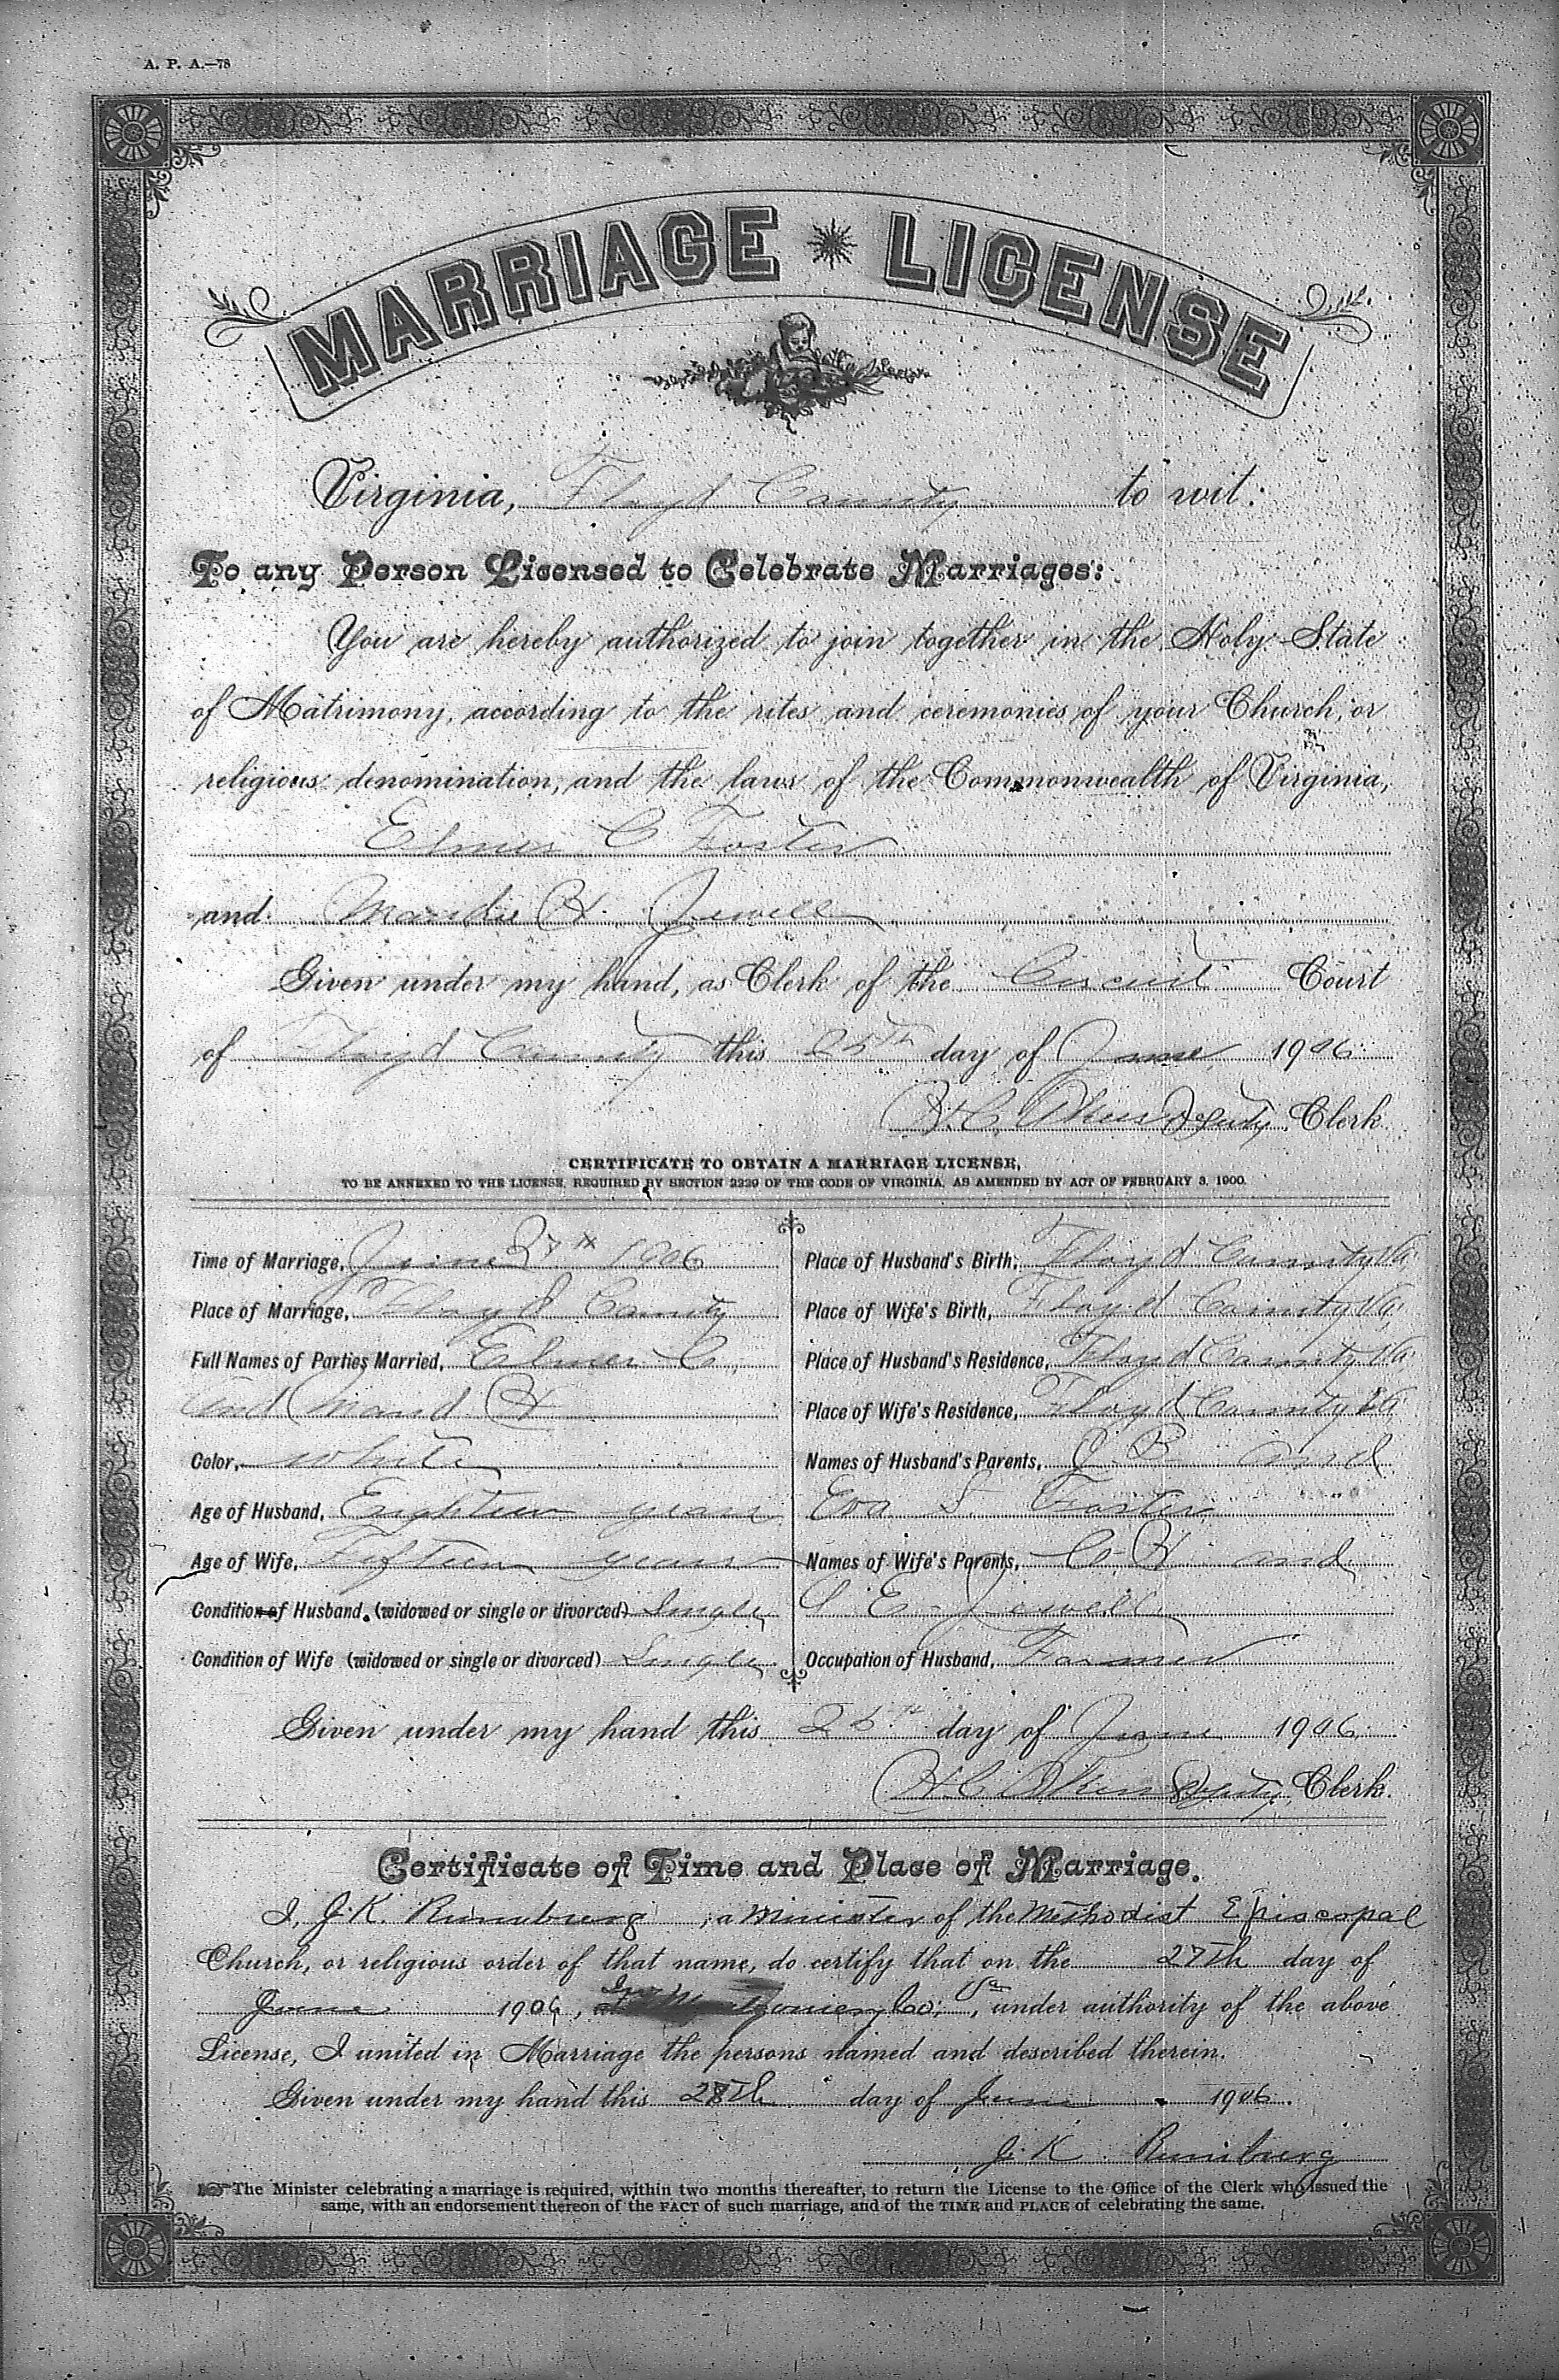 A. P. A.—78
MARRIAGE LICENSE
Virginia, Floyd County to wit:
To any Person Licensed to Celebrate Marriages:
You are hereby authorized to join together in the Holy State
of Matrimony, according to the rites and ceremonies of your Church, or
religious denomination, and the laws of the Commonwealth of Virginia,
Elmer C Foster
and H. Jewell
Given under my hand, as Clerk of the Circuit Court
of Floyd County this 25th day of June 1906
H. C. Deputy Clerk
CERTIFICATE TO OBTAIN A MARRIAGE LICENSE,
TO BE ANNEXED TO THE LICENSE, REQUIRED BY SECTION 2229 OF THE CODE OF VIRGINIA, AS AMENDED BY ACT OF FEBRUARY 3, 1900.
Time of Marriage, June 27th 1906
Place of Marriage, Floyd County
Full Names of Parties Married, Elmer C.
and Maud H
Color, White
Age of Husband, Eighteen years
Age of Wife, Fifteen years
Condition of Husband, (widowed or single or divorced) Single
Condition of Wife (widowed or single or divorced) Single
Place of Husband's Birth, Floyd County Va
Place of Wife's Birth, Floyd County Va
Place of Husband's Residence, Floyd County Va
Place of Wife's Residence, Floyd County Va
Names of Husband's Parents, J. B. and
Eva S. Foster
Names of Wife's Parents, C. H and
S E Jewell
Occupation of Husband, Farmer
Given under my hand this 25th day of June 1906
H. C. Deputy Clerk.
Certificate of Time and Place of Marriage.
I, J. K. , a Minister of the Methodist Episcopal
Church, or religious order of that name, do certify that on the 27th day of
June 1906, In Montgomery Co; Va, under authority of the above
License, I united in Marriage the persons named and described therein.
Given under my hand this 28th day of June 1906.
J. K
The Minister celebrating a marriage is required, within two months thereafter, to return the License to the Office of the Clerk who issued the
same, with an endorsement thereon of the FACT of such marriage, and of the TIME and PLACE of celebrating the same.